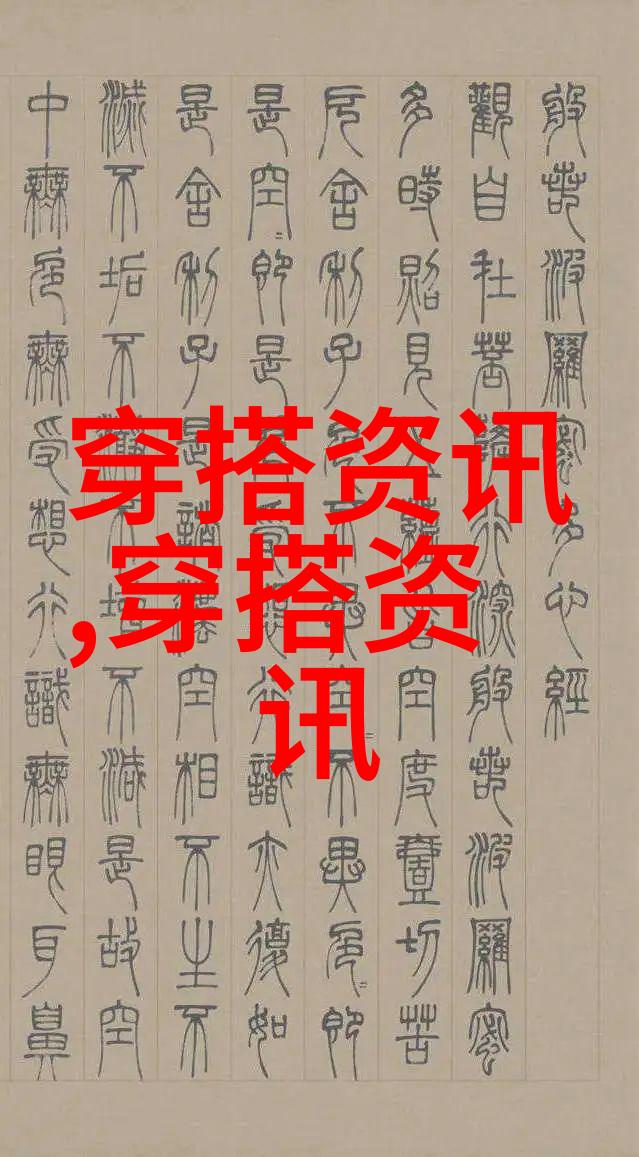 穿搭资讯
,穿搭资
讯
般若波羅蜜多心經
觀自在菩薩行深般若波羅蜜
多時照見五蘊皆空度壹切苦
厄舍利子色不異空=不異色=即
是空=即是色受想行識亦復如
是舍利子是諸灋空相不生不
滅不垢不淨不增不減是故空
中無色無受想行識無眼耳鼻